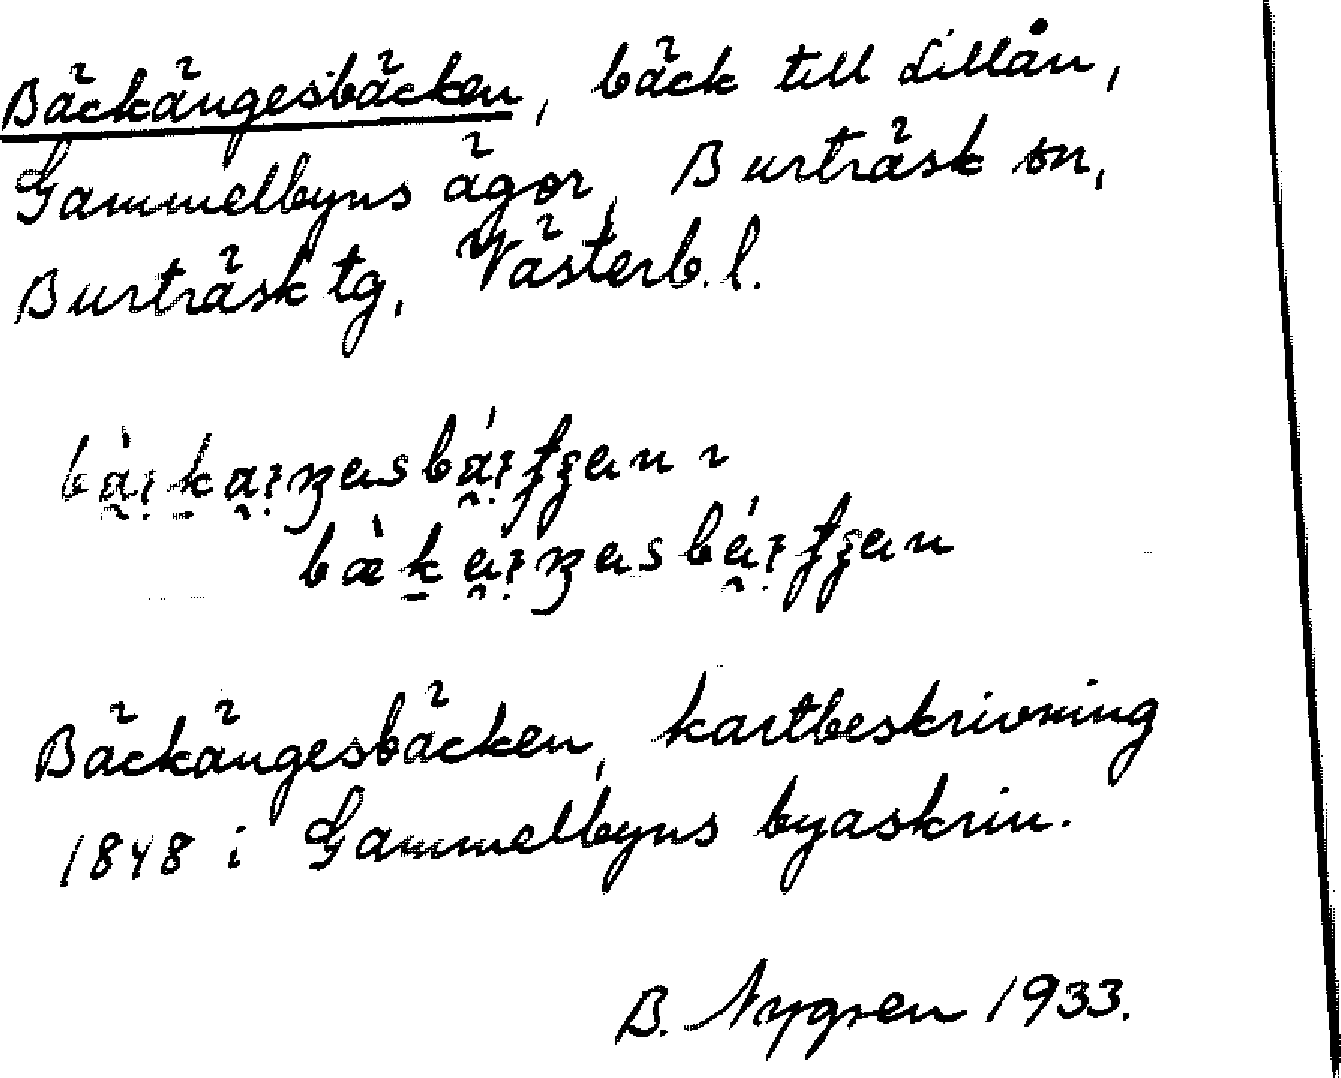 Bäckängesbäcken, bäck till Lillån,
Gammelbyns ägor, Burträsk sn,
Burträsk tg, Västerb. l.
Bäckängesbäcken, kartbeskrivning
1848 i Gammelbyns byaskrin.
B. Nygren 1933.